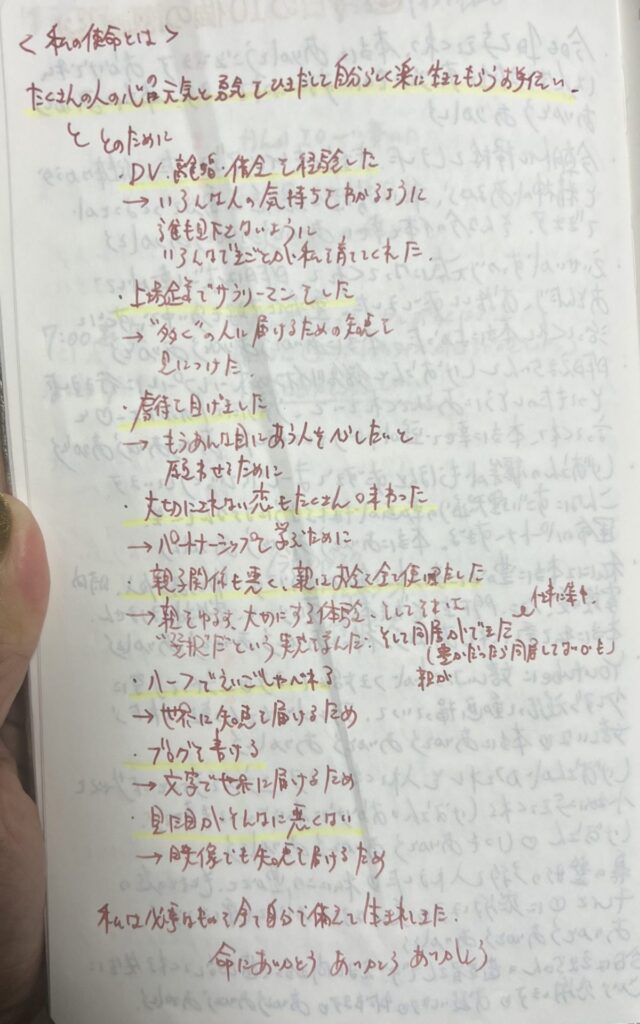 <私の使命とは>
たくさんの人の心に元気と勇気をひきだして自分らしく楽に生きてもらうお手伝い。
と そのために
・DV・離婚・借金を経験した
→いろんな人の気持ちをわかるように
誰も見下さないように
いろんなできごとが私を育ててくれた。
・上場企業でサラリーマンをした
→"多く"の人に届けるための知恵を
身につけた。
・虐待も受けました
→もうあんな目にあう人をなくしたいと
思わせるために
・大切にされない恋もたくさん味わった
→パートナーシップを学ぶために
・親子関係も悪く、親はお金を全て使い果たした
→親をゆるす、大切にする体験、そしてそれは
"選択"だという実を学んだ。そして同居ができた
仕事に集中。
(豊かだったら同居してないかも)
親が
・ハーフでえいごしゃべれる
→世界に知恵を届けるため
・ブログを書ける
→文字で世界に届けるため
・見た目がそんなに悪くない
→映像でも知恵を届けるため
私は必要なもの全て自分で備えて生まれてきた。
命にありがとう ありがとう ありがとう